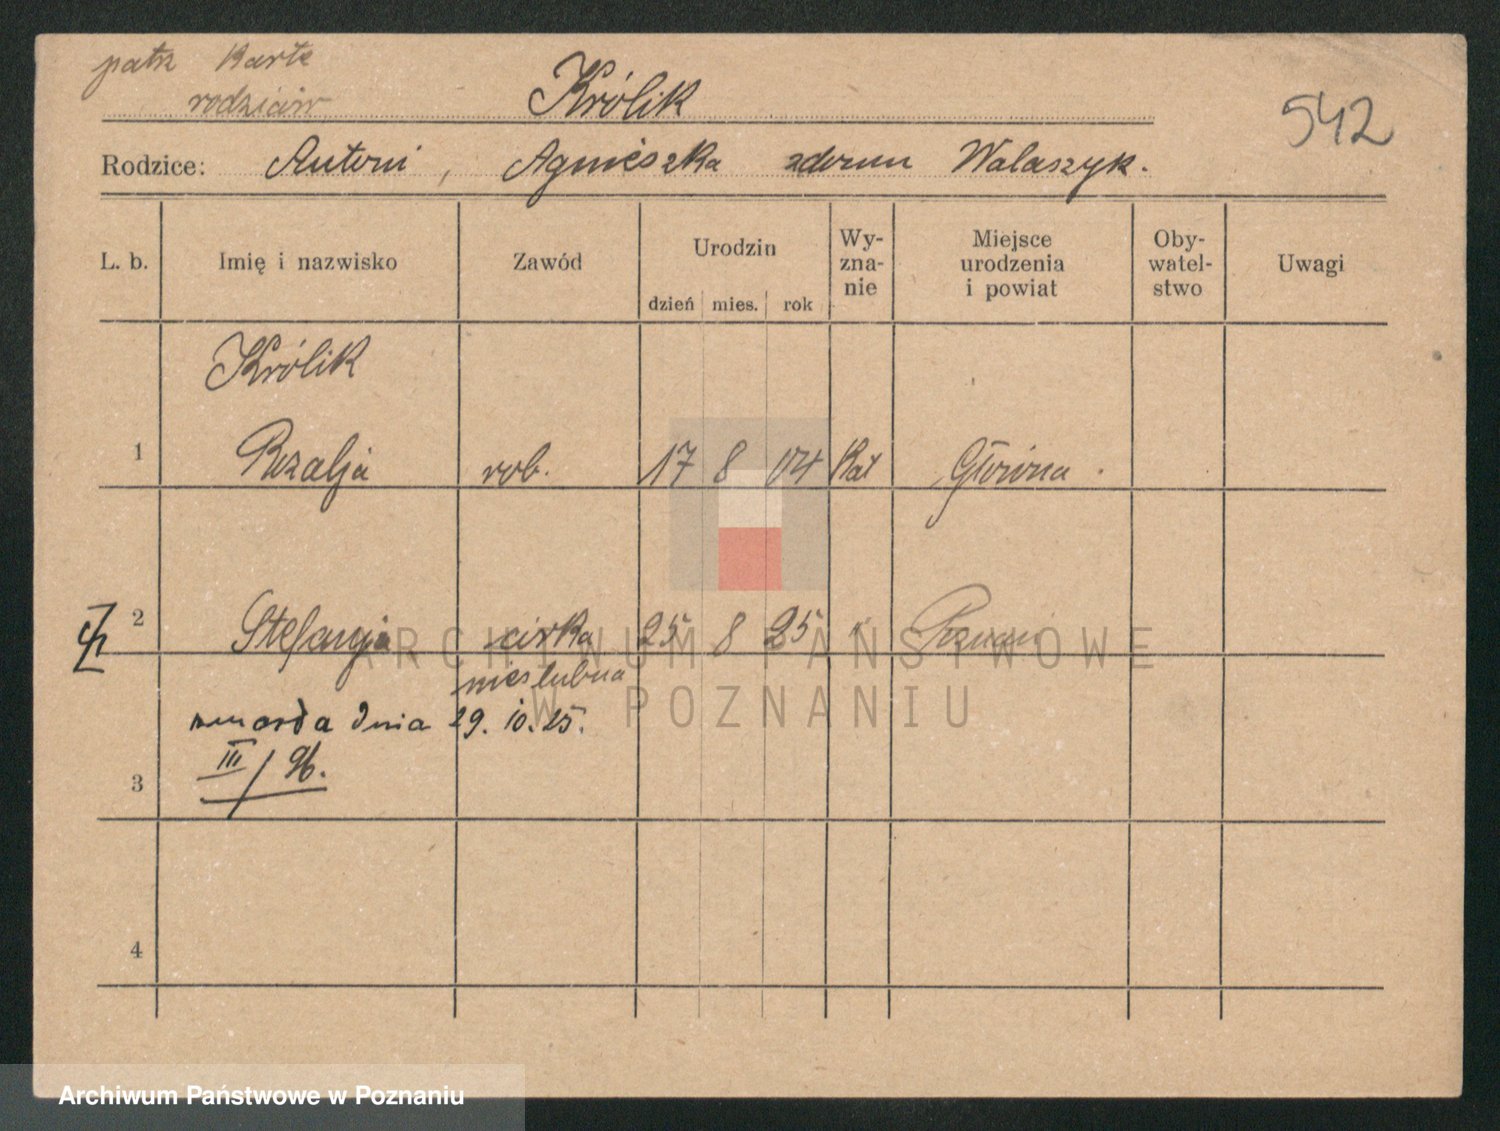 patrz Kartę
rodziców
Królik
542
Rodzice: Antoni, Agnieszka zdomu Walaszyk.
L. b.
Imię i nazwisko
Zawód
Urodzin
dzień mies. rok
Wy-
zna-
nie
Miejsce
urodzenia
i powiat
Oby-
watel-
stwo
Uwagi
Królik
1 Rozalja rob. 17 8 04 Kat Główna.
2 Stefanja córka 25 8 25 " Poznań
nieslubna
zmarła dnia 29.10.25.
3 III/96.
4
ARCHIWUM PAŃSTWOWE
W POZNANIU
Archiwum Państwowe w Poznaniu